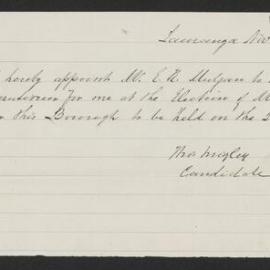 Tauranga Nov
hereby appoint Mr. E. K. Mulgan to
Scrutineer for me at the Election of M
this Borough to be held on the 2
Thos Wrigley
Candidate